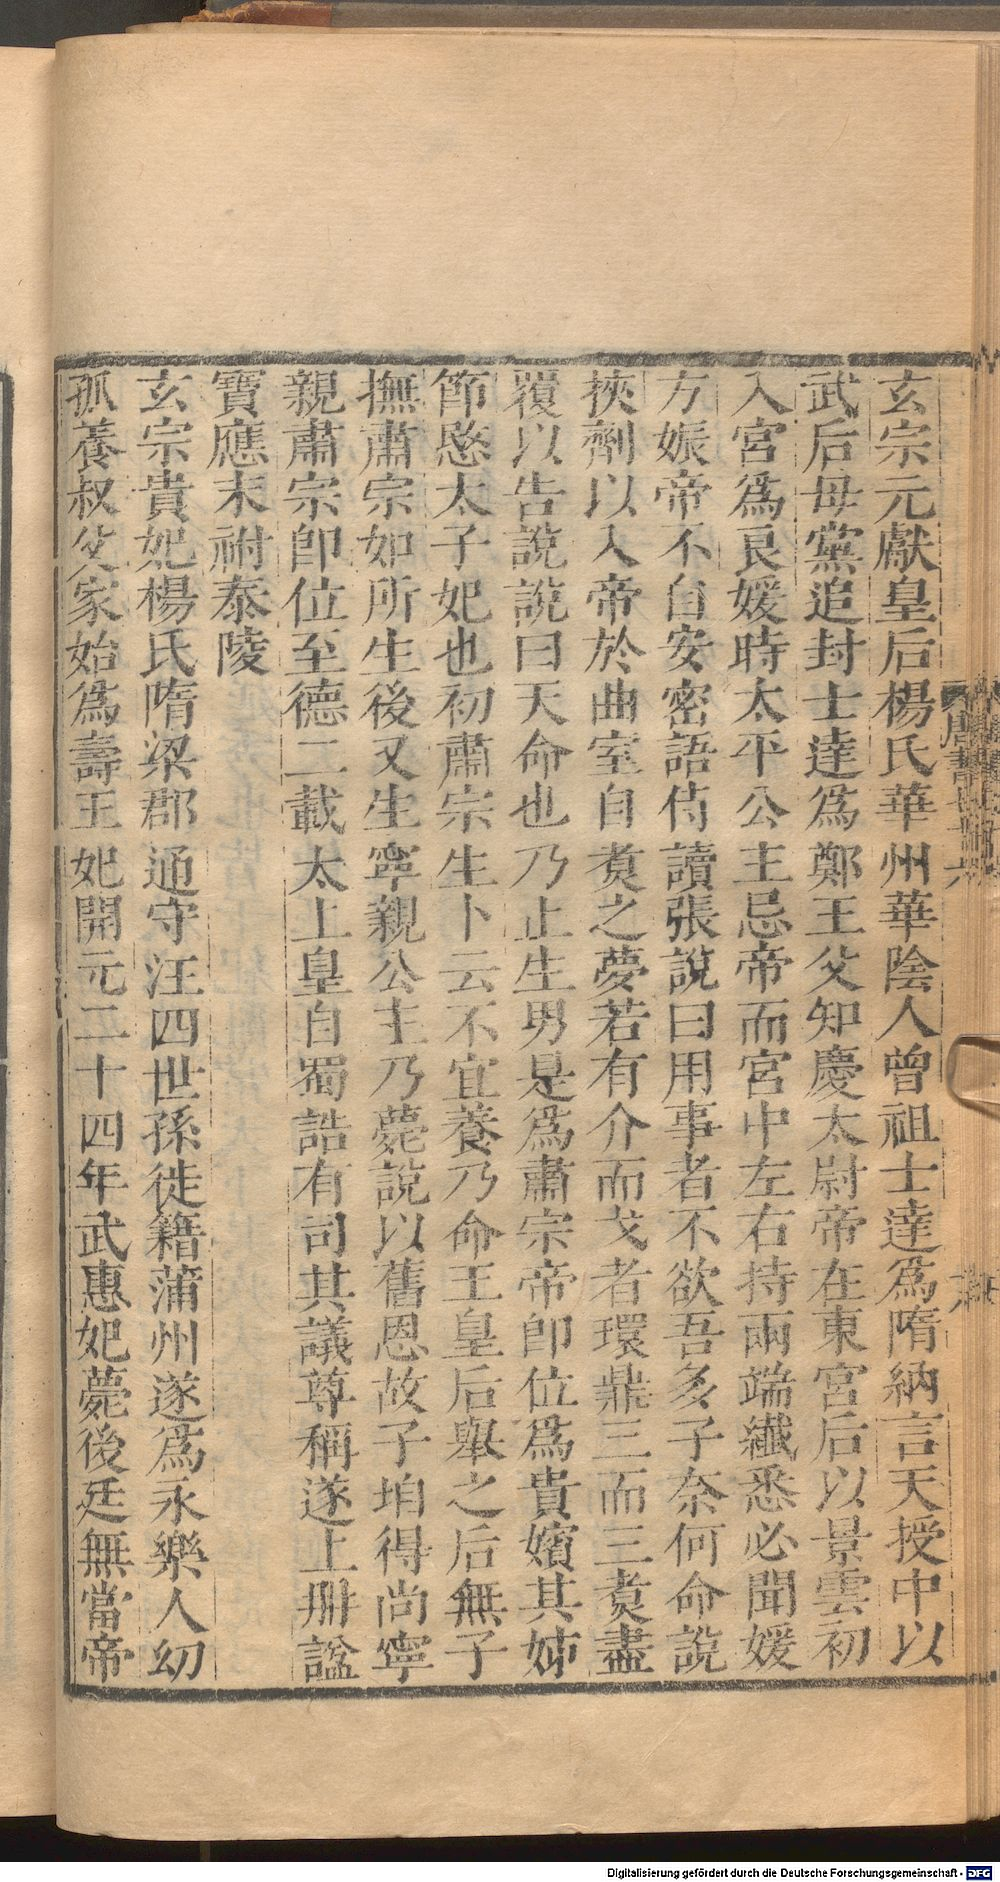 玄宗元獻皇后楊氏華州華陰人曾祖士達爲隋納言天授中以
武后母黨追封士達爲鄭王父知慶太尉帝在東宮后以景雲初
入宮爲良媛時太平公主忌帝而宮中左右持兩端纎悉必聞媛
方娠帝不自安密語侍讀張說曰用事者不欲吾多子奈何命說
挾劑以入帝於曲室自煑之夢若有介而戈者環鼎三而三煑盡
覆以告說說曰天命也乃止生男是爲肅宗帝即位爲貴嬪其姊
節愍太子妃也初肅宗生卜云不宜養乃命王皇后舉之后無子
撫肅宗如所生後又生寧親公主乃薨說以舊恩故子垍得尚寧
親肅宗即位至德二載太上皇自蜀誥有司其議尊稱遂上冊諡
寶應末祔泰陵
玄宗貴妃楊氏隋梁郡通守汪四世孫徙籍蒲州遂爲永樂人幼
孤養叔父家始爲壽王妃開元二十四年武惠妃薨後廷無當帝
唐書七十六
Digitalisierung gefördert durch die Deutsche Forschungsgemeinschaft - DFG